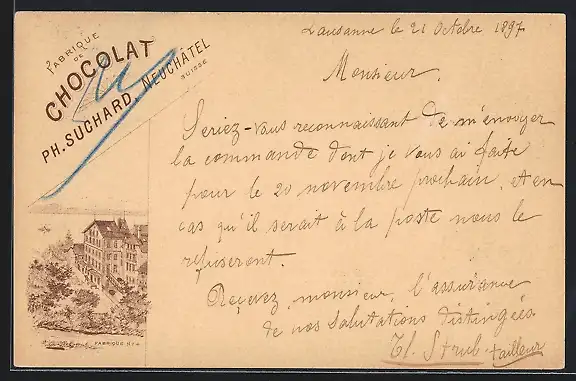 FABRIQUE
DE
CHOCOLAT
PH. SUCHARD, NEUCHÂTEL
SUISSE
Lausanne le 21 Octobre 1897
Monsieur,
Seriez-vous reconnaissant de m'envoyer
la commande dont je vous ai faite
pour le 20 novembre prochain, et en
cas qu'il serait à la poste nous le
refuseront.
Recevez, monsieur, l'assurance
de nos salutations distinguées
Strub tailleur
FABRIQUE No 4